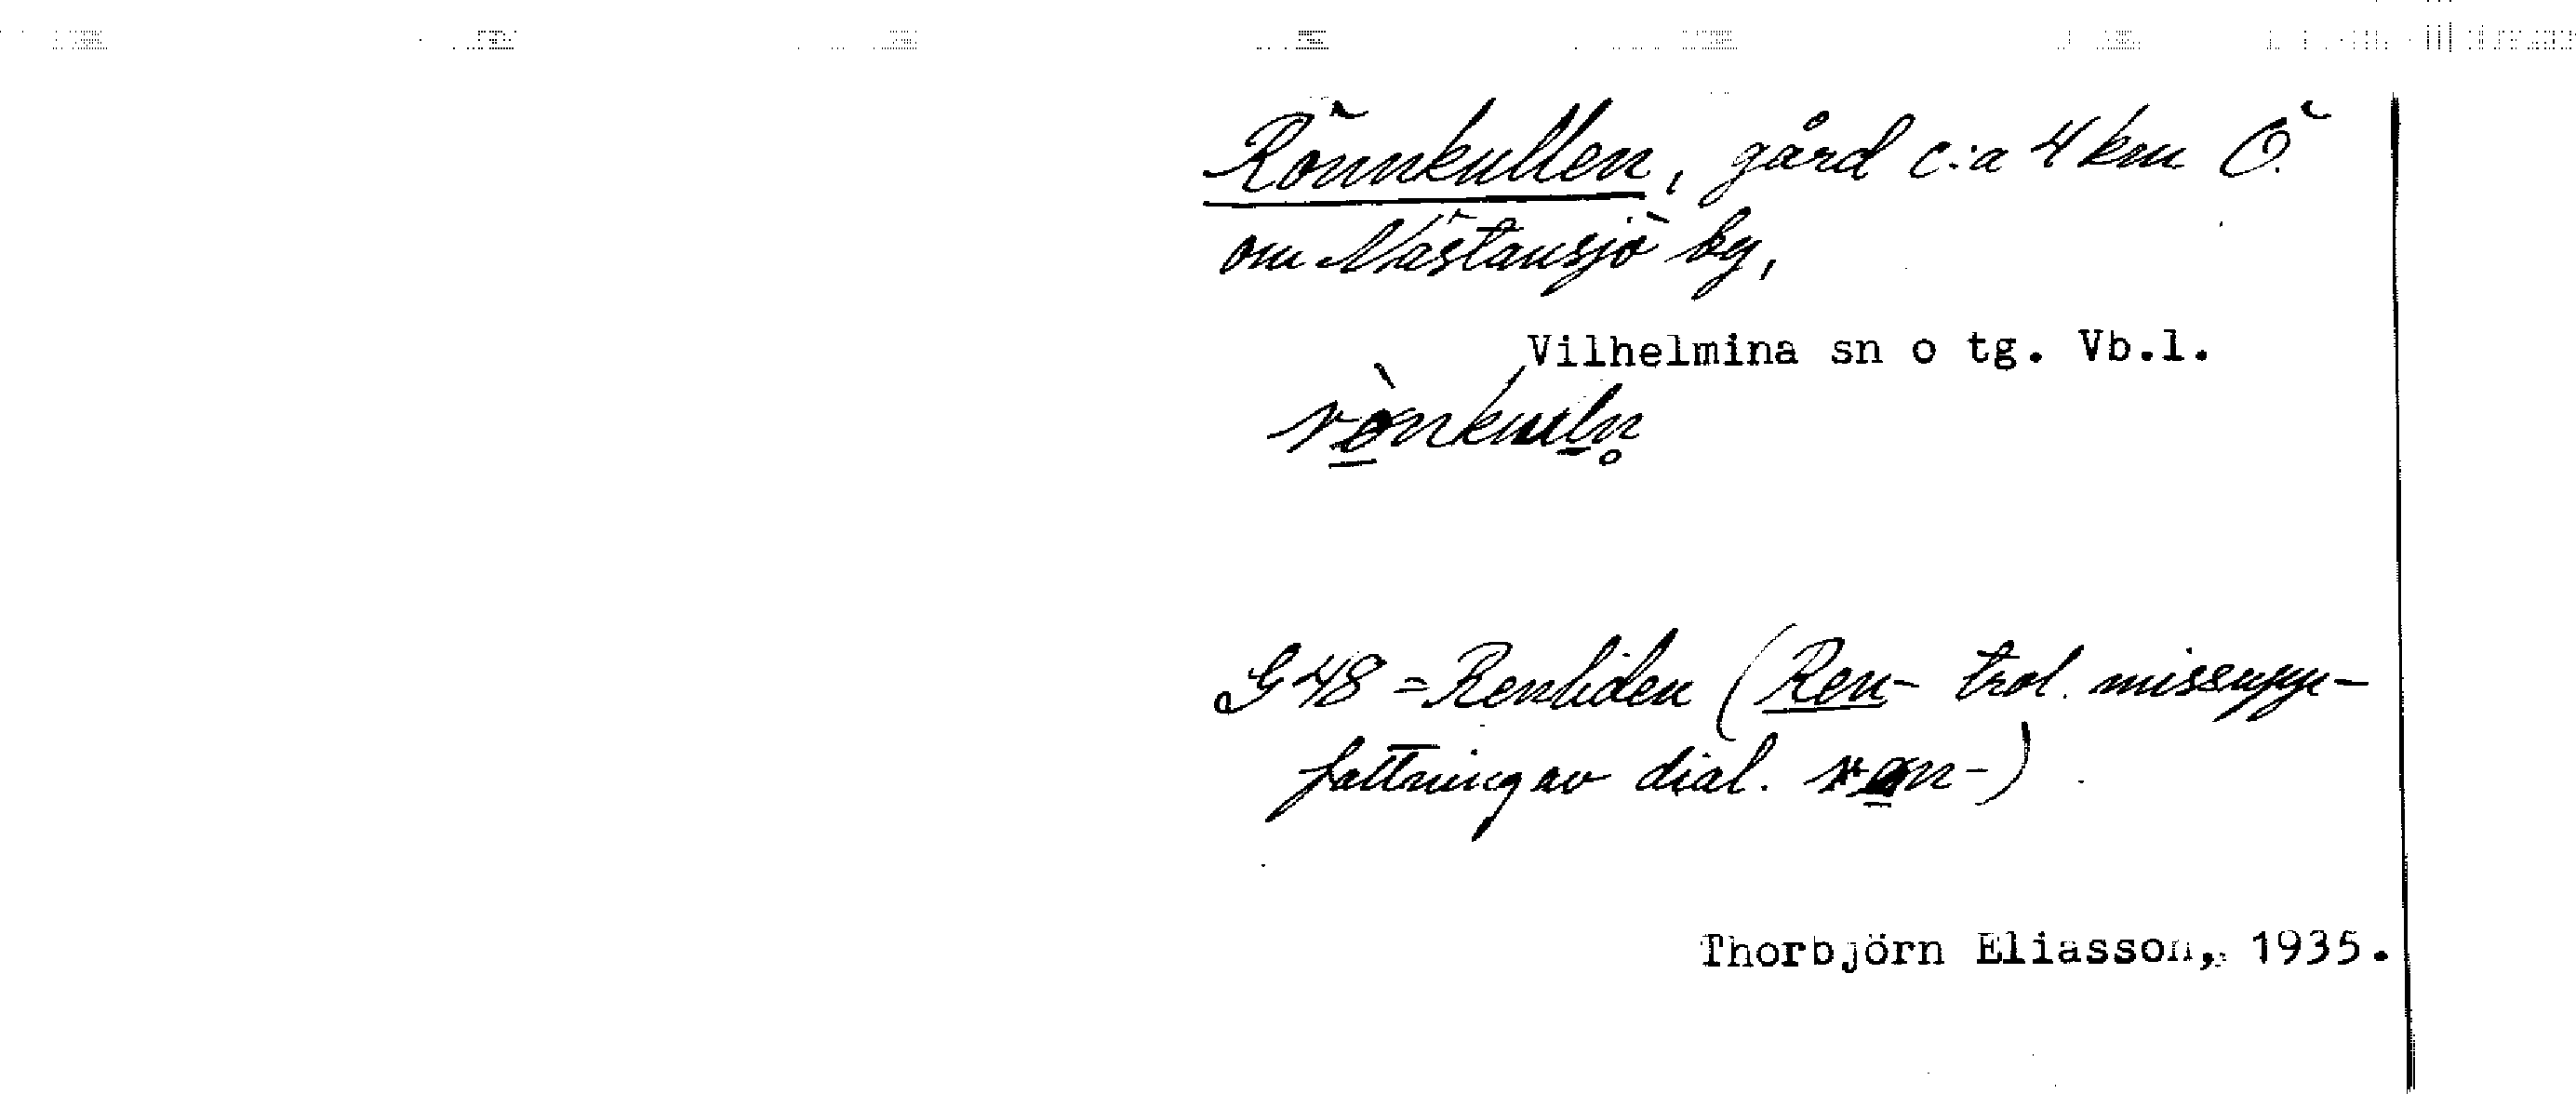 Rönnkullen, gård c:a 4 km Ö.
om Nästansjö by,
Vilhelmina sn o tg. Vb.l.
G 48 = Renliden (Ren- trol. missupp-
fattning av dial.
Thorbjörn Eliasson, 1935.